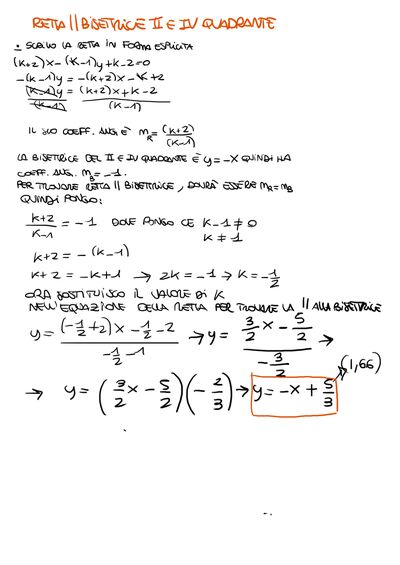 RETTA // BISETRICE II E IV QUADRANTE
• SCRIVO LA RETTA IN FORMA ESPLICITA
(K+2)x-(K-1)y+K-2=0
-(K-1)y = -(K+2)x-K+2
(K-1)y/(K-1) = (K+2)x+K-2/(K-1)
IL SUO COEFF. ANG. È m_R = (K+2)/(K-1)
LA BISETRICE DEL II E IV QUADRANTE È y=-x QUINDI HA
COEFF. ANG. m_B = -1.
PER TROVARE RETTA // BISETRICE, DOVRÀ ESSERE m_R=m_B
QUINDI PONGO:
K+2/K-1 = -1 DOVE PONGO CE K-1≠0
K≠1
K+2 = -(K-1)
K+2 = -K+1 → 2K = -1 → K = -1/2
ORA SOSTITUISCO IL VALORE DI K
NELL'EQUAZIONE DELLA RETTA PER TROVARE LA // ALLA BISETRICE
y = (-1/2+2)x - 1/2 - 2 / -1/2 - 1 → y = 3/2 x - 5/2 / -3/2 →
(1,66)
→ y = (3/2 x - 5/2)(-2/3) → y = -x + 5/3